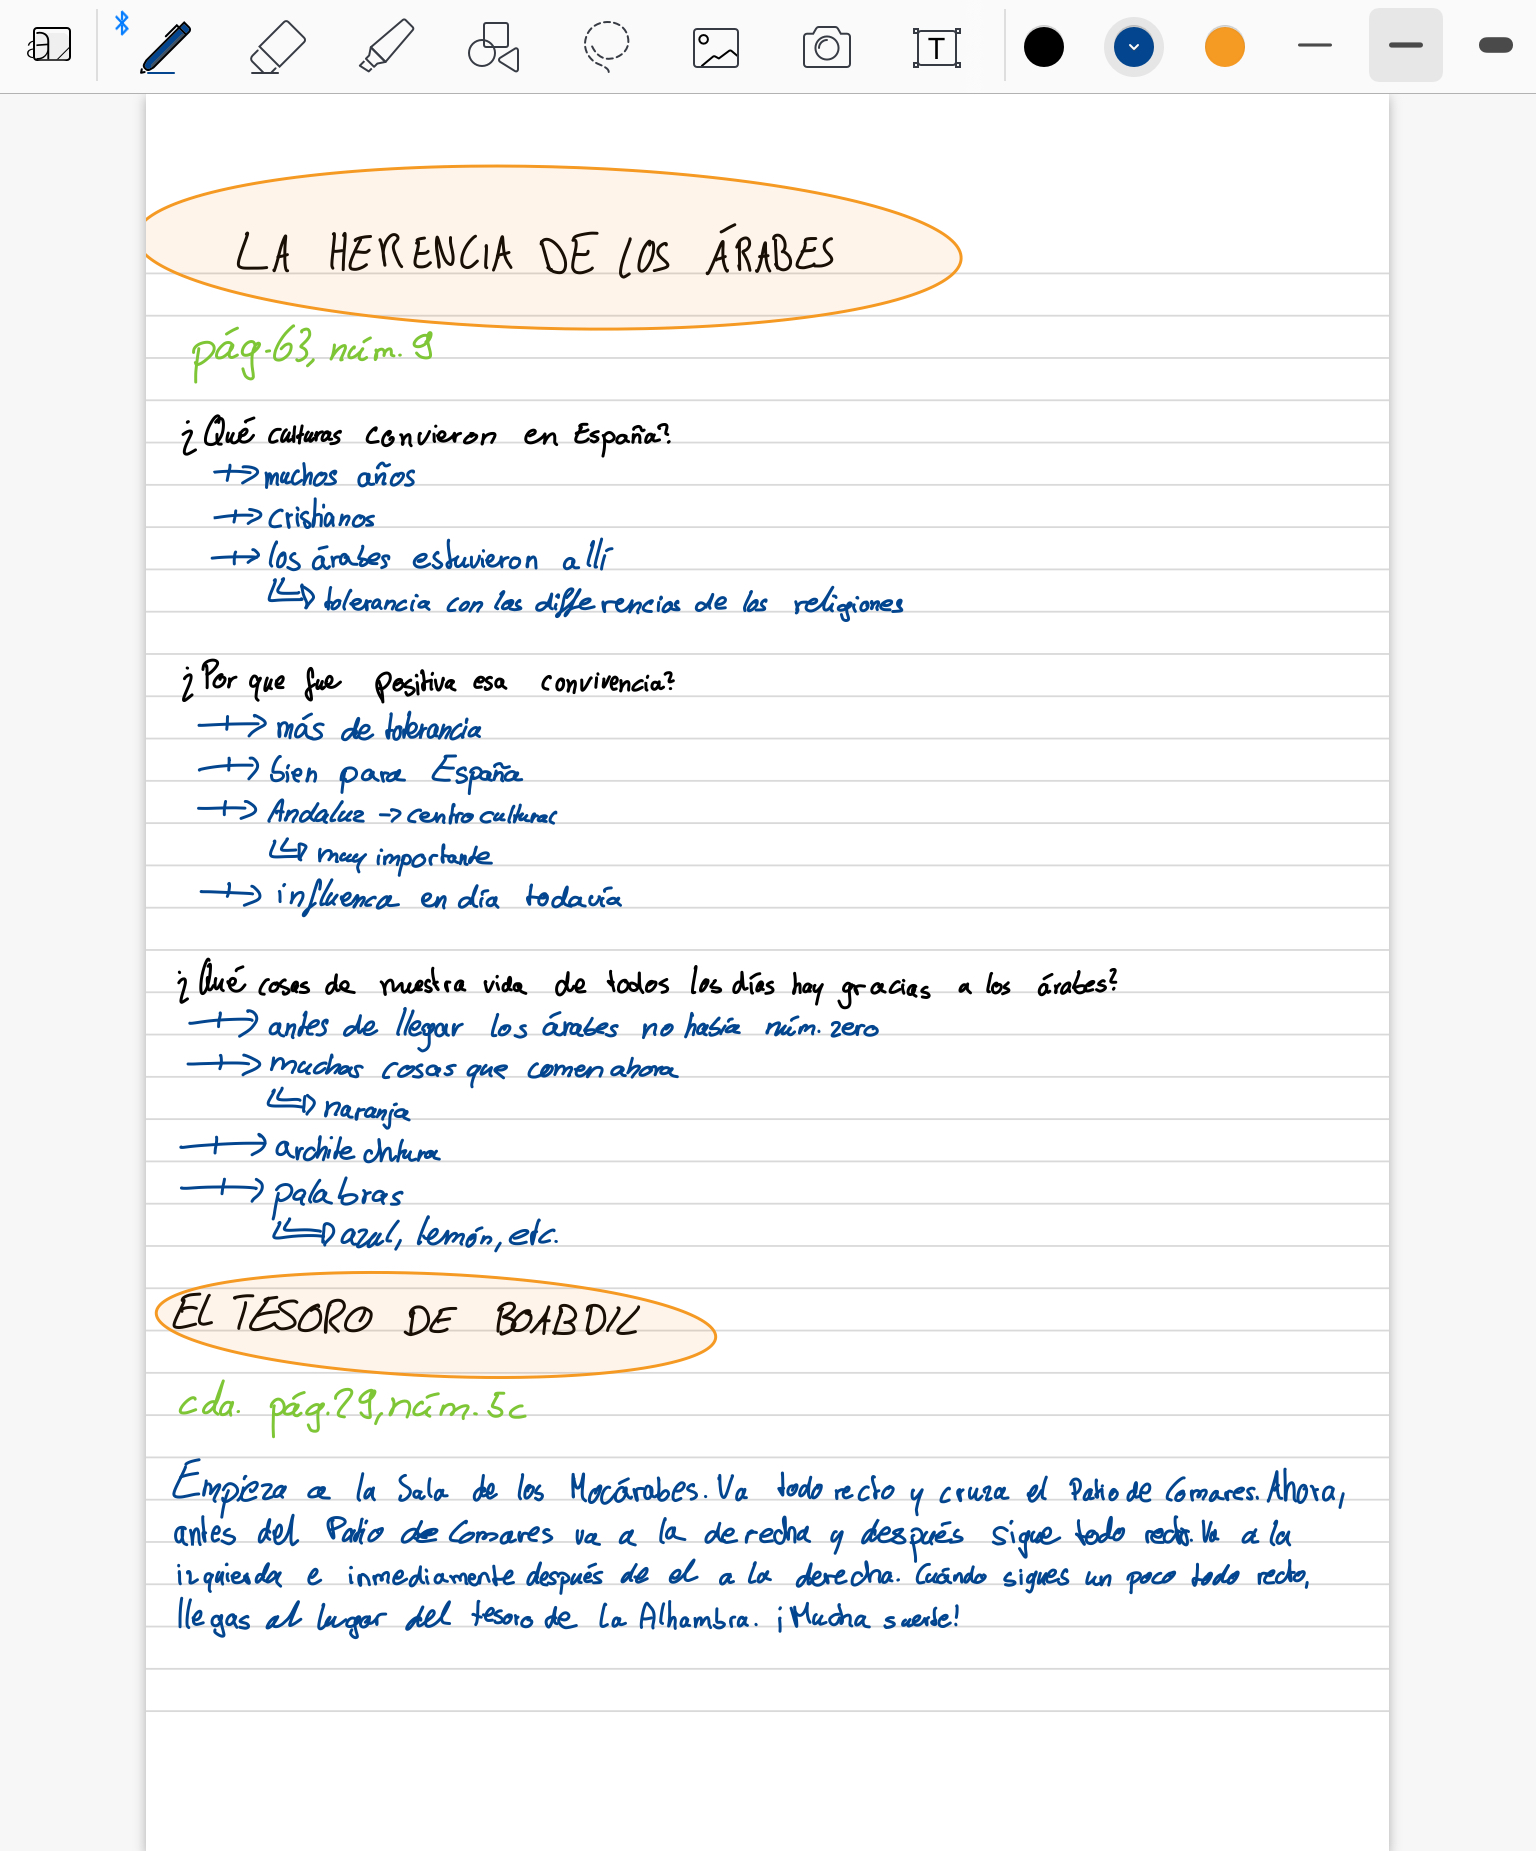 T
LA HERENCIA DE LOS ÁRABES
pág. 63, núm. 9
¿Qué culturas convieron en España?
muchos años
cristianos
los árabes estuvieron allí
tolerancia con las differencias de las religiones
¿Por que fue positiva esa convivencia?
más de tolerancia
bien para España
Andaluz → centro cultural
muy importante
influenca en día todavía
¿Qué cosas de nuestra vida de todos los días hay gracias a los árabes?
antes de llegar los árabes no había núm. zero
muchas cosas que comen ahora
naranja
architechtura
palabras
azul, lemón, etc.
EL TESORO DE BOABDIL
cda. pág. 29, núm. 5c
Empieza a la Sala de los Mocárabes. Va todo recto y cruza el Patio de Comares. Ahora,
antes del Patio de Comares va a la derecha y después sigue todo recto. Va a la
izquierda e inmediamente después de el a la derecha. Cuándo sigues un poco todo recto,
llegas al lugar del tesoro de la Alhambra. ¡Mucha suerte!